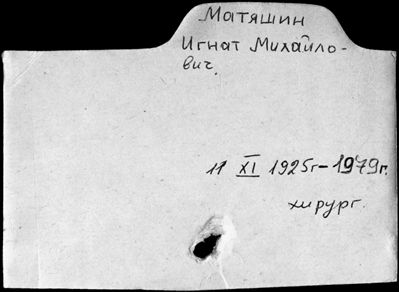 Матяшин
Игнат Михайло-
вич.
11 XI 1925г-1979г.
хирург.